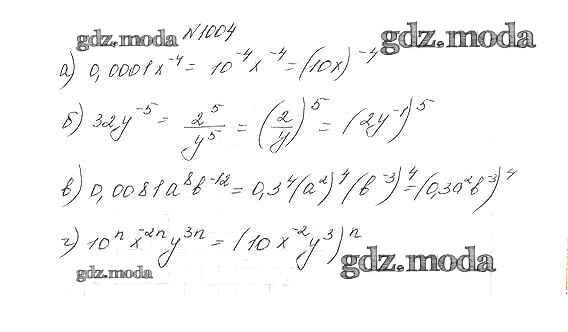 gdz.moda №1004 gdz.moda
а) 0,0001x⁻⁴ = 10⁻⁴x⁻⁴ = (10x)⁻⁴
б) 32y⁻⁵ = 2⁵/y⁵ = (2/y)⁵ = (2y⁻¹)⁵
в) 0,0081a⁸b⁻¹² = 0,3⁴(a²)⁴(b⁻³)⁴ = (0,3a²b⁻³)⁴
г) 10ⁿx⁻²ⁿy³ⁿ = (10x⁻²y³)ⁿ
gdz.moda gdz.moda